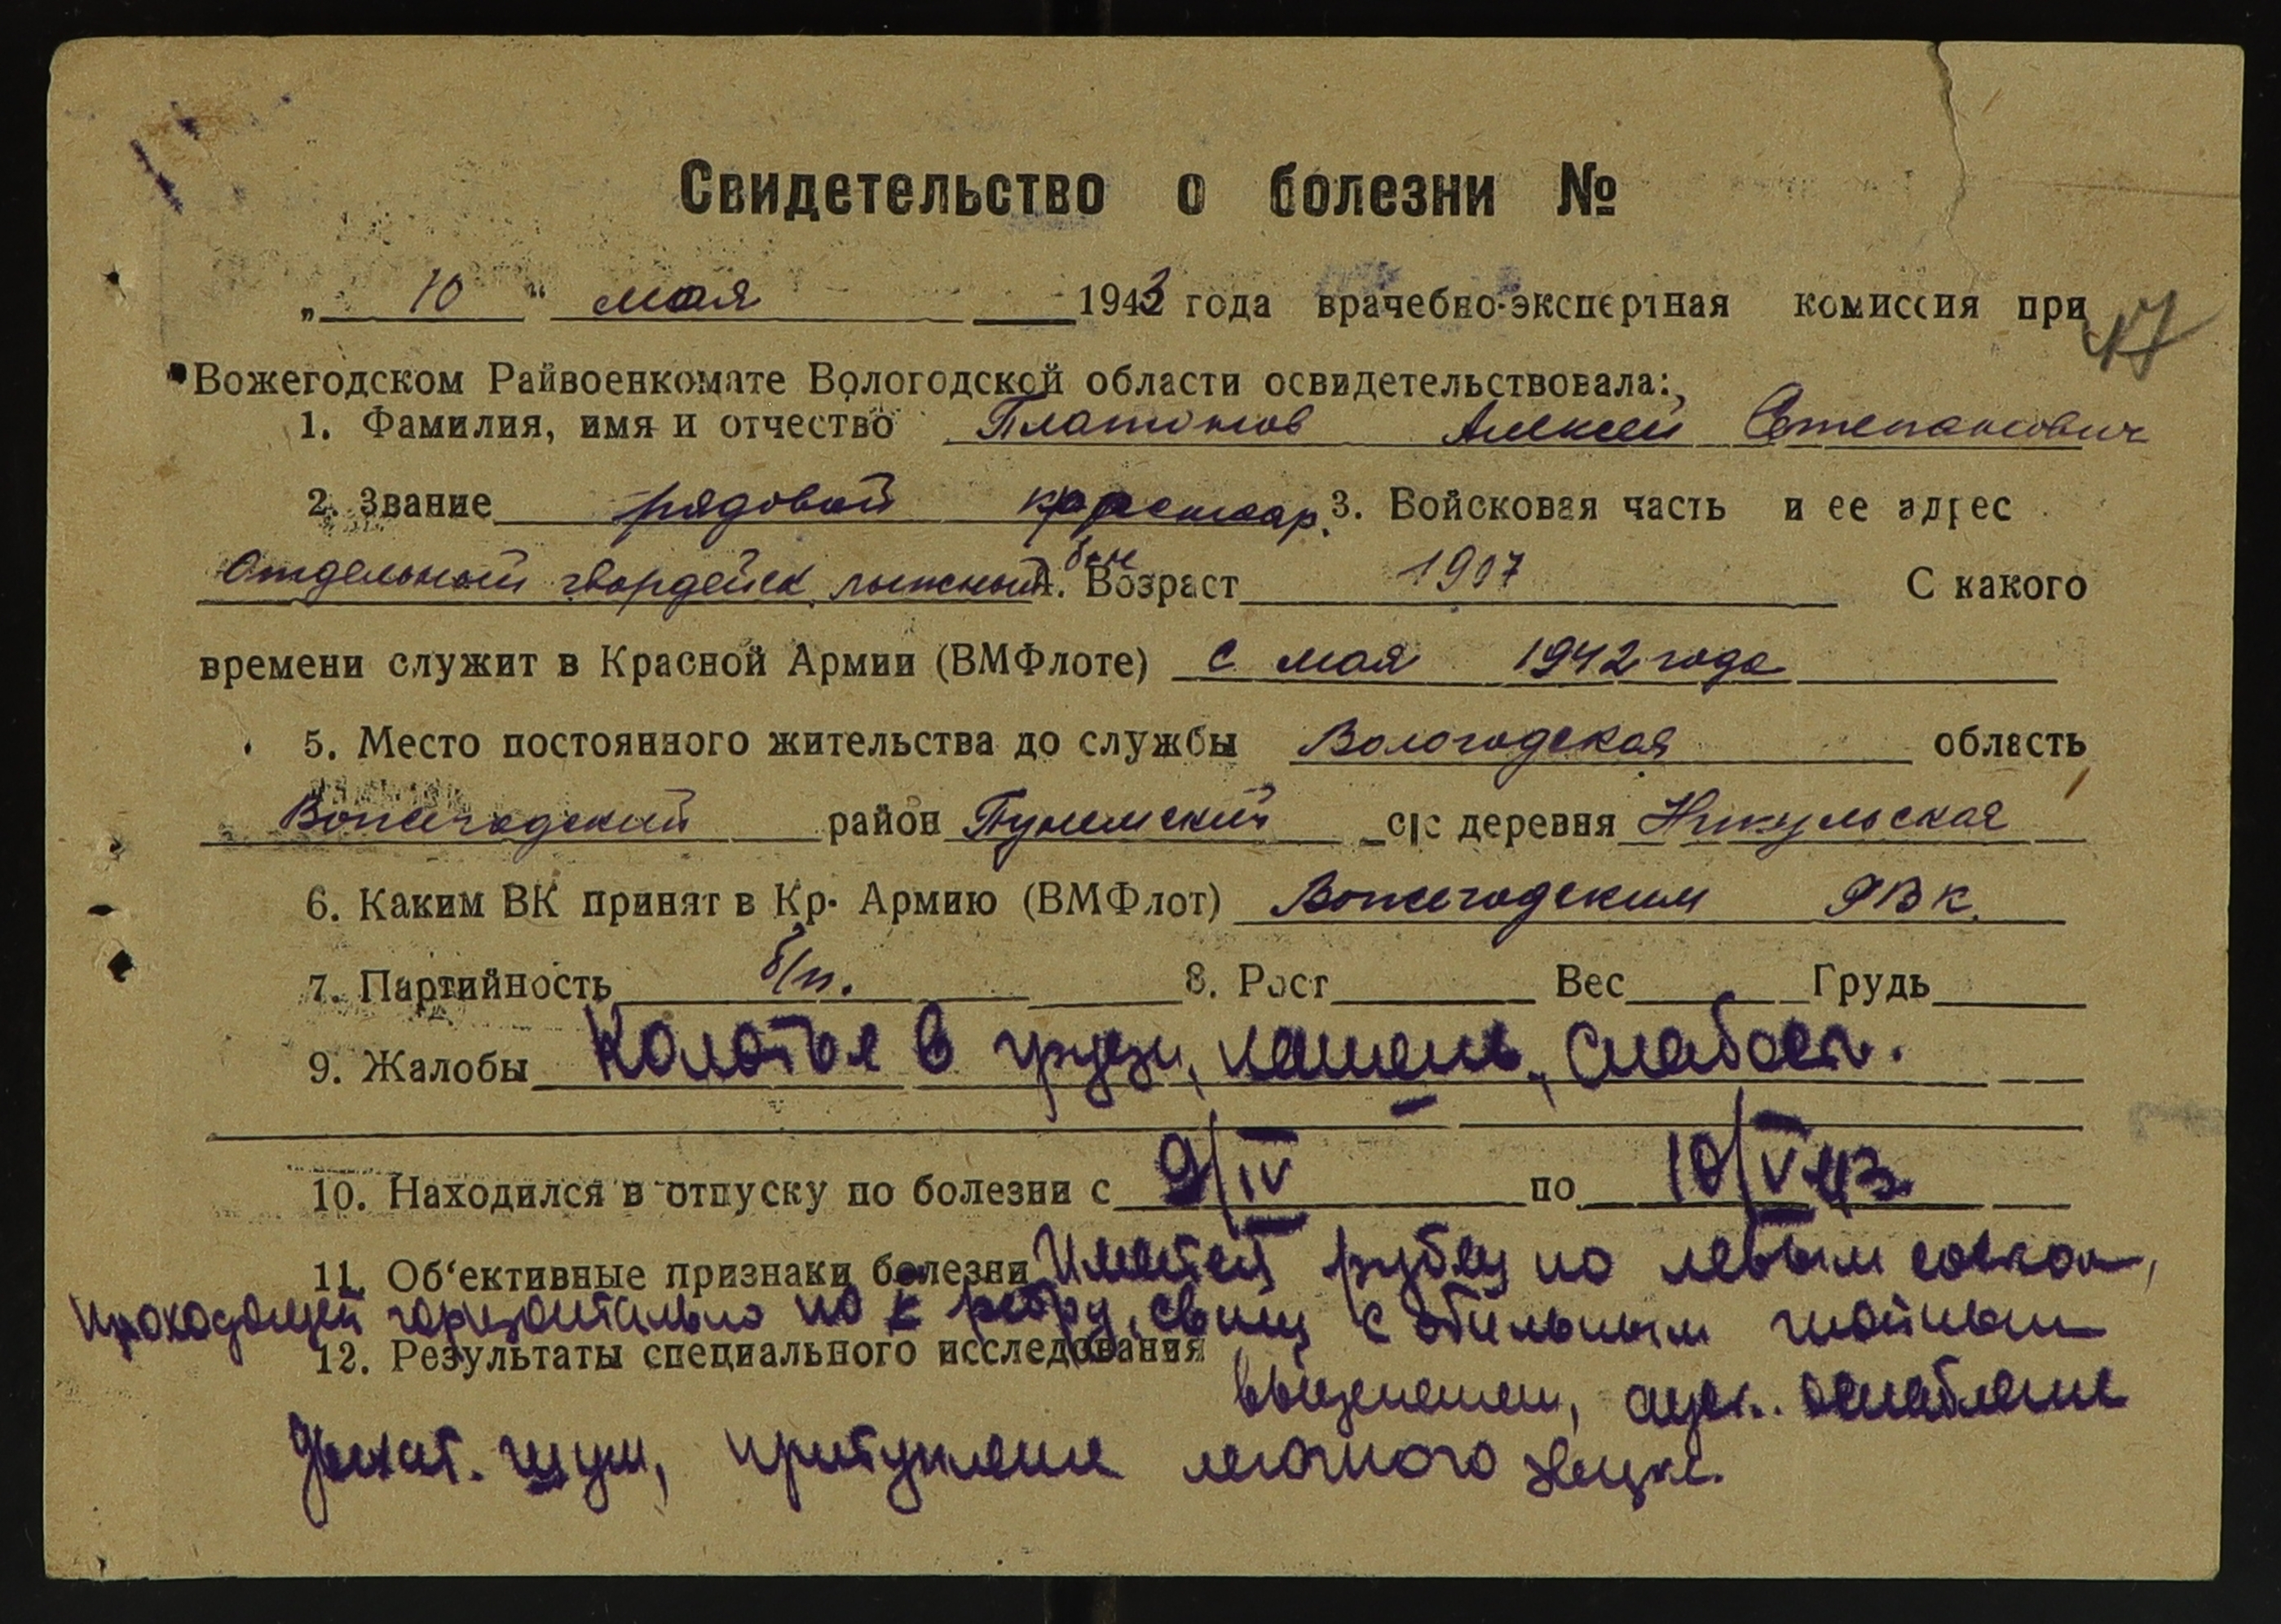 Свидетельство о болезни №
„ 10 " мая 1943 года врачебно-экспертная комиссия при
Вожегодском Райвоенкомате Вологодской области освидетельствовала:
1. Фамилия, имя и отчество Платонов Алексей Степанович
2. Звание рядовой 3. Войсковая часть и ее адрес
Отдельный гвардейск. лыжный б-н 4. Возраст 1907 С какого
времени служит в Красной Армии (ВМФлоте) с мая 1942 года
5. Место постоянного жительства до службы Вологодская область
Вожегодский район Пунемский с/с деревня Никульская
6. Каким ВК принят в Кр. Армию (ВМФлот) Вожегодским РВК.
7. Партийность б/п. 8. Рост Вес Грудь
9. Жалобы Колотье в груди, кашель, слабость.
10. Находился в отпуску по болезни с 9/IV по 10/V 43.
11. Об'ективные признаки болезни Имеется рубец по левым соском,
проходящей горизонтально по ребру, свищ с обильным гнойным
12. Результаты специального исследования
выделением, ослабление
дыхат. шум, притупление легочного звука.